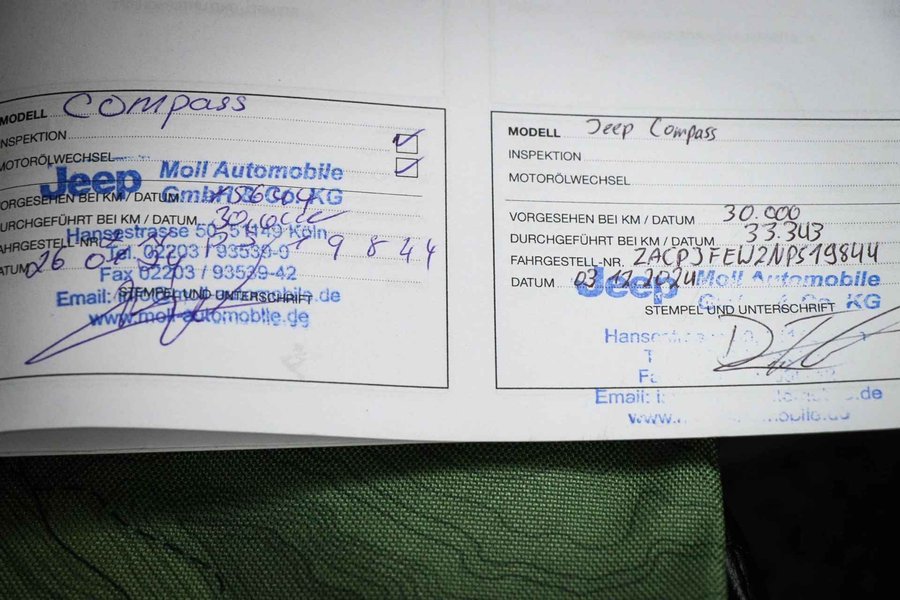 MODELL Compass
INSPEKTION
MOTORÖLWECHSEL
Jeep Moll Automobile
GmbH & Co. KG
VORGESEHEN BEI KM / DATUM
DURCHGEFÜHRT BEI KM / DATUM
Hansestrasse 50, 51149 Köln
FAHRGESTELL-NR. 19844
Tel. 02203 / 93539-0
DATUM 26
Fax 02203 / 93539-42
Email: moll-automobile.de
STEMPEL UND UNTERSCHRIFT
www.moll-automobile.de
MODELL Jeep Compass
INSPEKTION
MOTORÖLWECHSEL
VORGESEHEN BEI KM / DATUM 30.000
DURCHGEFÜHRT BEI KM / DATUM 33.343
FAHRGESTELL-NR. ZACPJFEW2NPS19844
DATUM 03.12.2024
Jeep Moll Automobile
KG
STEMPEL UND UNTERSCHRIFT
Email: